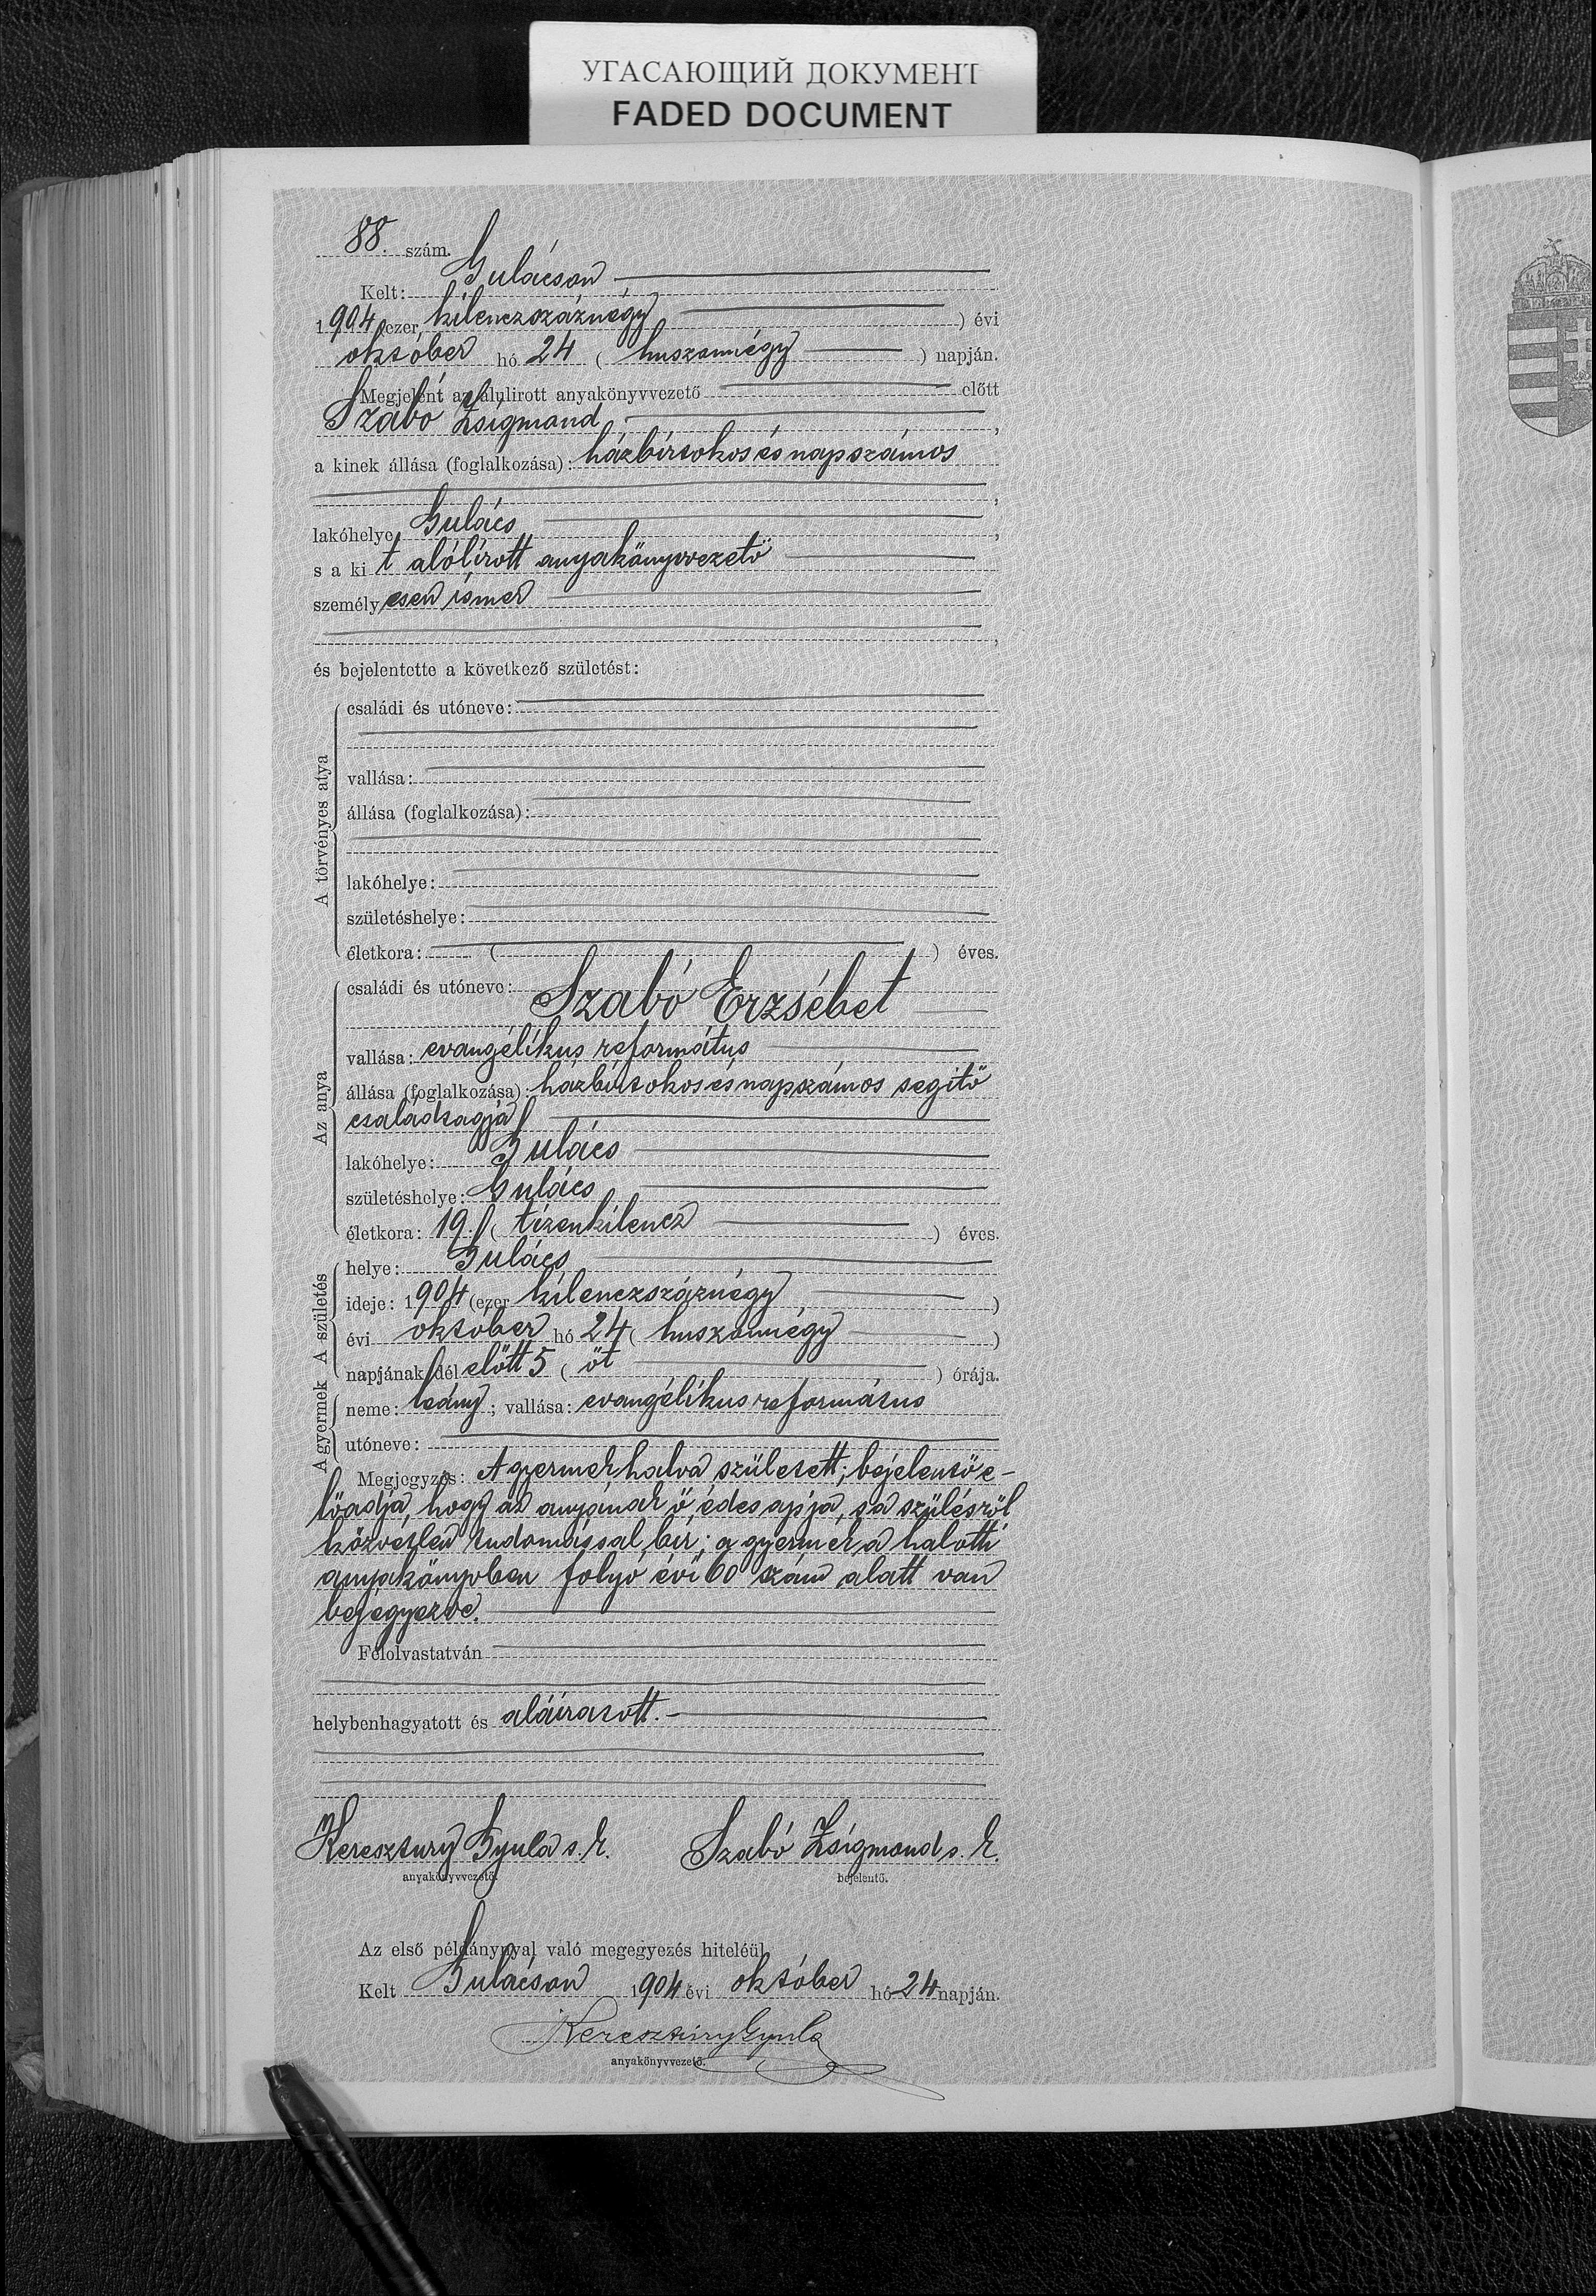 УГАСАЮЩИЙ ДОКУМЕНТ
FADED DOCUMENT
88. szám.
Kelt: Gulácson
1904 (ezer kilenczszáznégy) évi
október hó 24 (huszonnégy) napján.
Megjelent az alulirott anyakönyvvezető előtt
Szabó Zsigmond,
a kinek állása (foglalkozása): házbirtokos és napszámos
,
lakóhelye Gulács,
s a kit alólírott anyakönyvvezető
személyesen ismer
,
és bejelentette a következő születést:
A törvényes atya
családi és utóneve:
vallása:
állása (foglalkozása):
lakóhelye:
születéshelye:
életkora: ( ) éves.
Az anya
családi és utóneve: Szabó Erzsébet
vallása: evangélikus református
állása (foglalkozása): házbirtokos és napszámos segitő
családtagja
lakóhelye: Gulács
születéshelye: Gulács
életkora: 19. (tizenkilencz) éves.
A születés
helye: Gulács
ideje: 1904 (ezer kilenczszáznégy)
évi október hó 24 (huszonnégy)
napjának dél előtt 5 (öt) órája.
A gyermek
neme: leány; vallása: evangélikus református
utóneve:
Megjegyzés: A gyermek halva született; bejelentő e-
lőadja, hogy az anyának ő édes apja, s a szülésről
közvetlen tudomással bir; a gyermek a halotti
anyakönyvben folyó évi 60 szám alatt van
bejegyezve.
Felolvastatván
helybenhagyatott és aláíratott.
Keresztury Gyula s. k. Szabó Zsigmond s. k.
anyakönyvvezető. bejelentő.
Az első példánynyal való megegyezés hiteléül
Kelt Gulácson 1904 évi október hó 24 napján.
Keresztury Gyula
anyakönyvvezető.